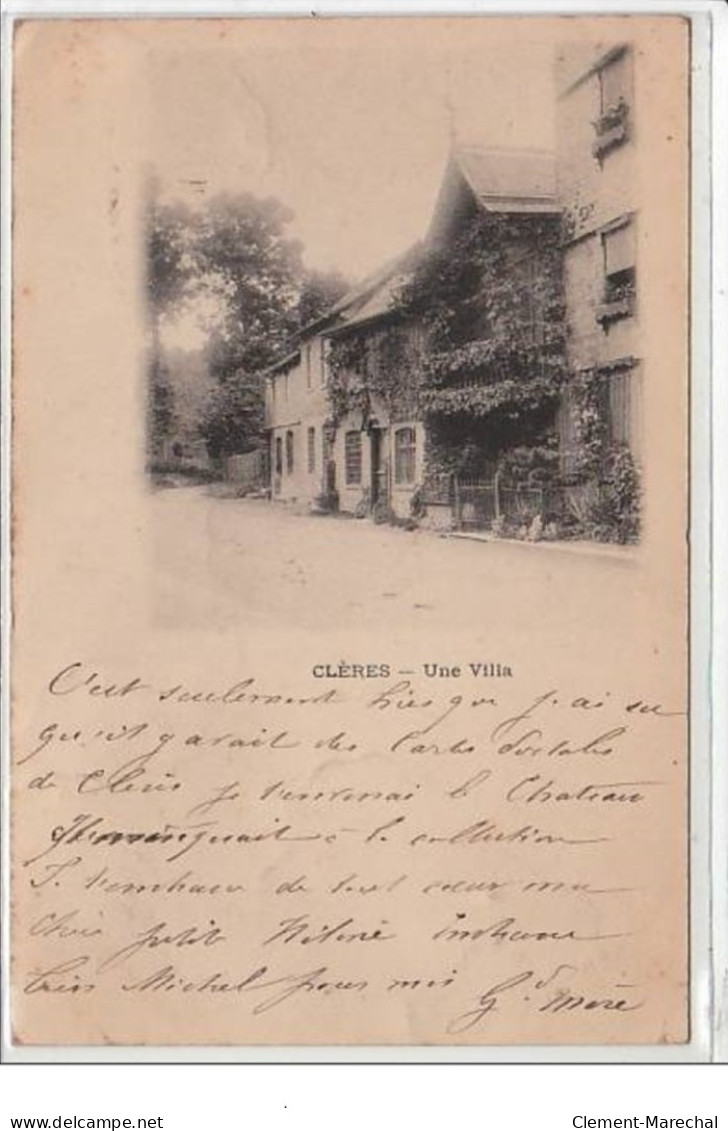 CLÈRES — Une Villa
C'est seulement hier que j'ai su
qu'il y avait des Cartes Postales
de Clères je t'enverrai le Chateau
manquait à la collection
Je t'embrasse de tout cœur ma
chère petite embrasse
bien Michel pour moi
Gd Mère
www.delcampe.net
Clement-Marechal